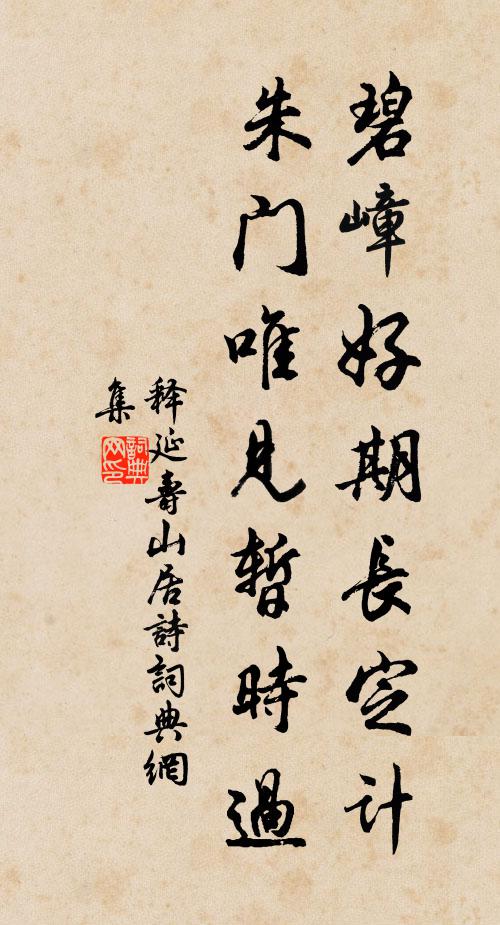 碧嶂好期長定計
朱门唯見暫時過
释延壽山居詩詞典網
集
詞典
网印